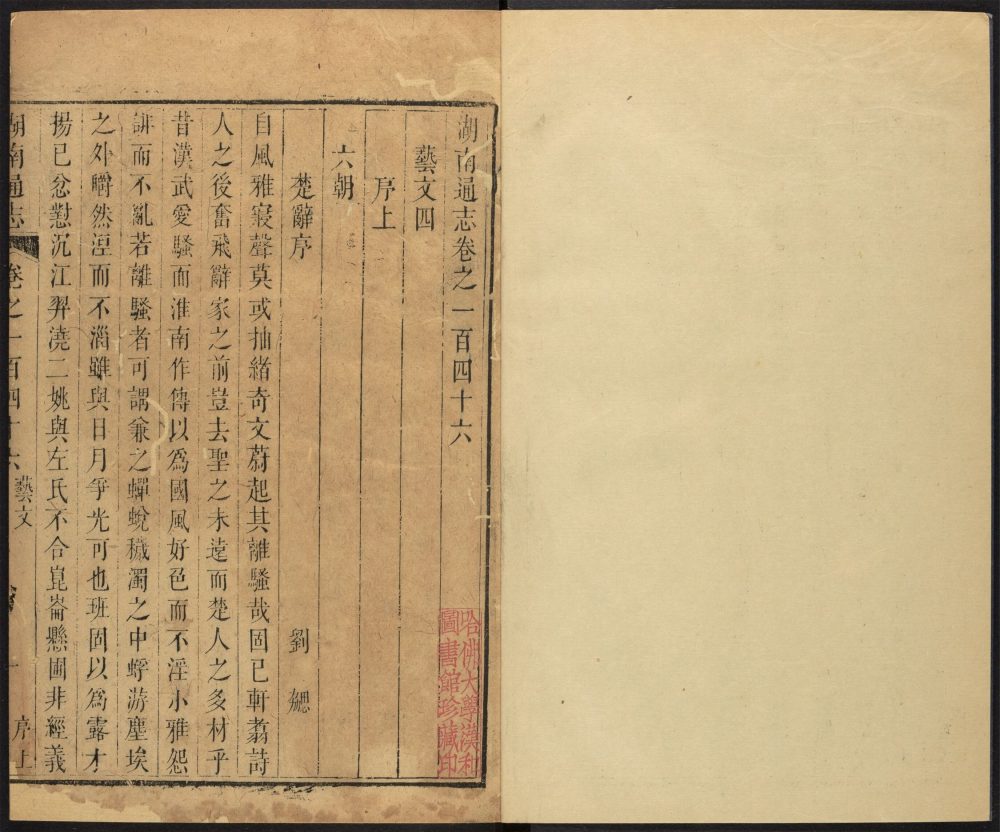 湖南通志卷之一百四十六
藝文四
序上
六朝
楚辭序 劉勰
自風雅寢聲莫或抽緒奇文蔚起其離騷哉固已軒翥詩
人之後奮飛辭家之前豈去聖之未遠而楚人之多材乎
昔漢武愛騷而淮南作傳以爲國風好色而不淫小雅怨
誹而不亂若離騷者可謂兼之蟬蛻穢濁之中蜉游塵埃
之外皭然涅而不淄雖與日月爭光可也班固以爲露才
揚已忿懟沉江羿澆二姚與左氏不合崑崙懸圃非經義
湖南通志 卷之一百四十六 藝文 序上
哈佛大學漢和
圖書館珍藏印